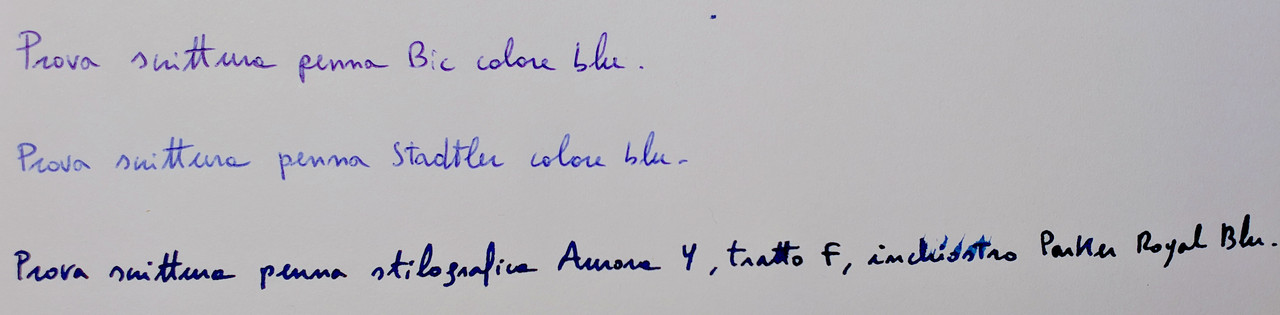 Prova scrittura penna Bic colore blu.
Prova scrittura penna Stadtler colore blu.
Prova scrittura penna stilografica Aurora Y, tratto F, inchiostro Parker Royal Blu.